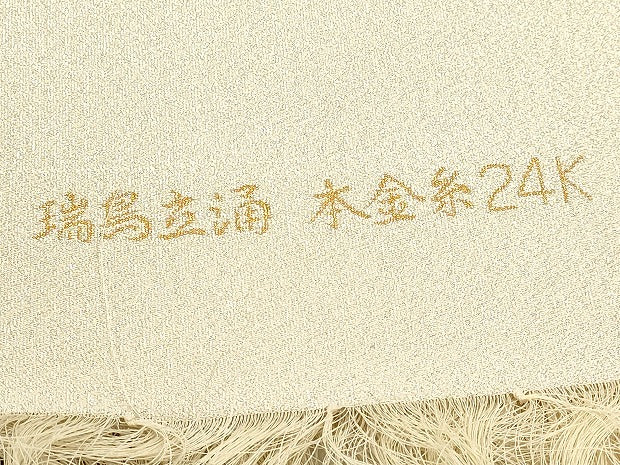 瑞鳥立涌 本金糸24K